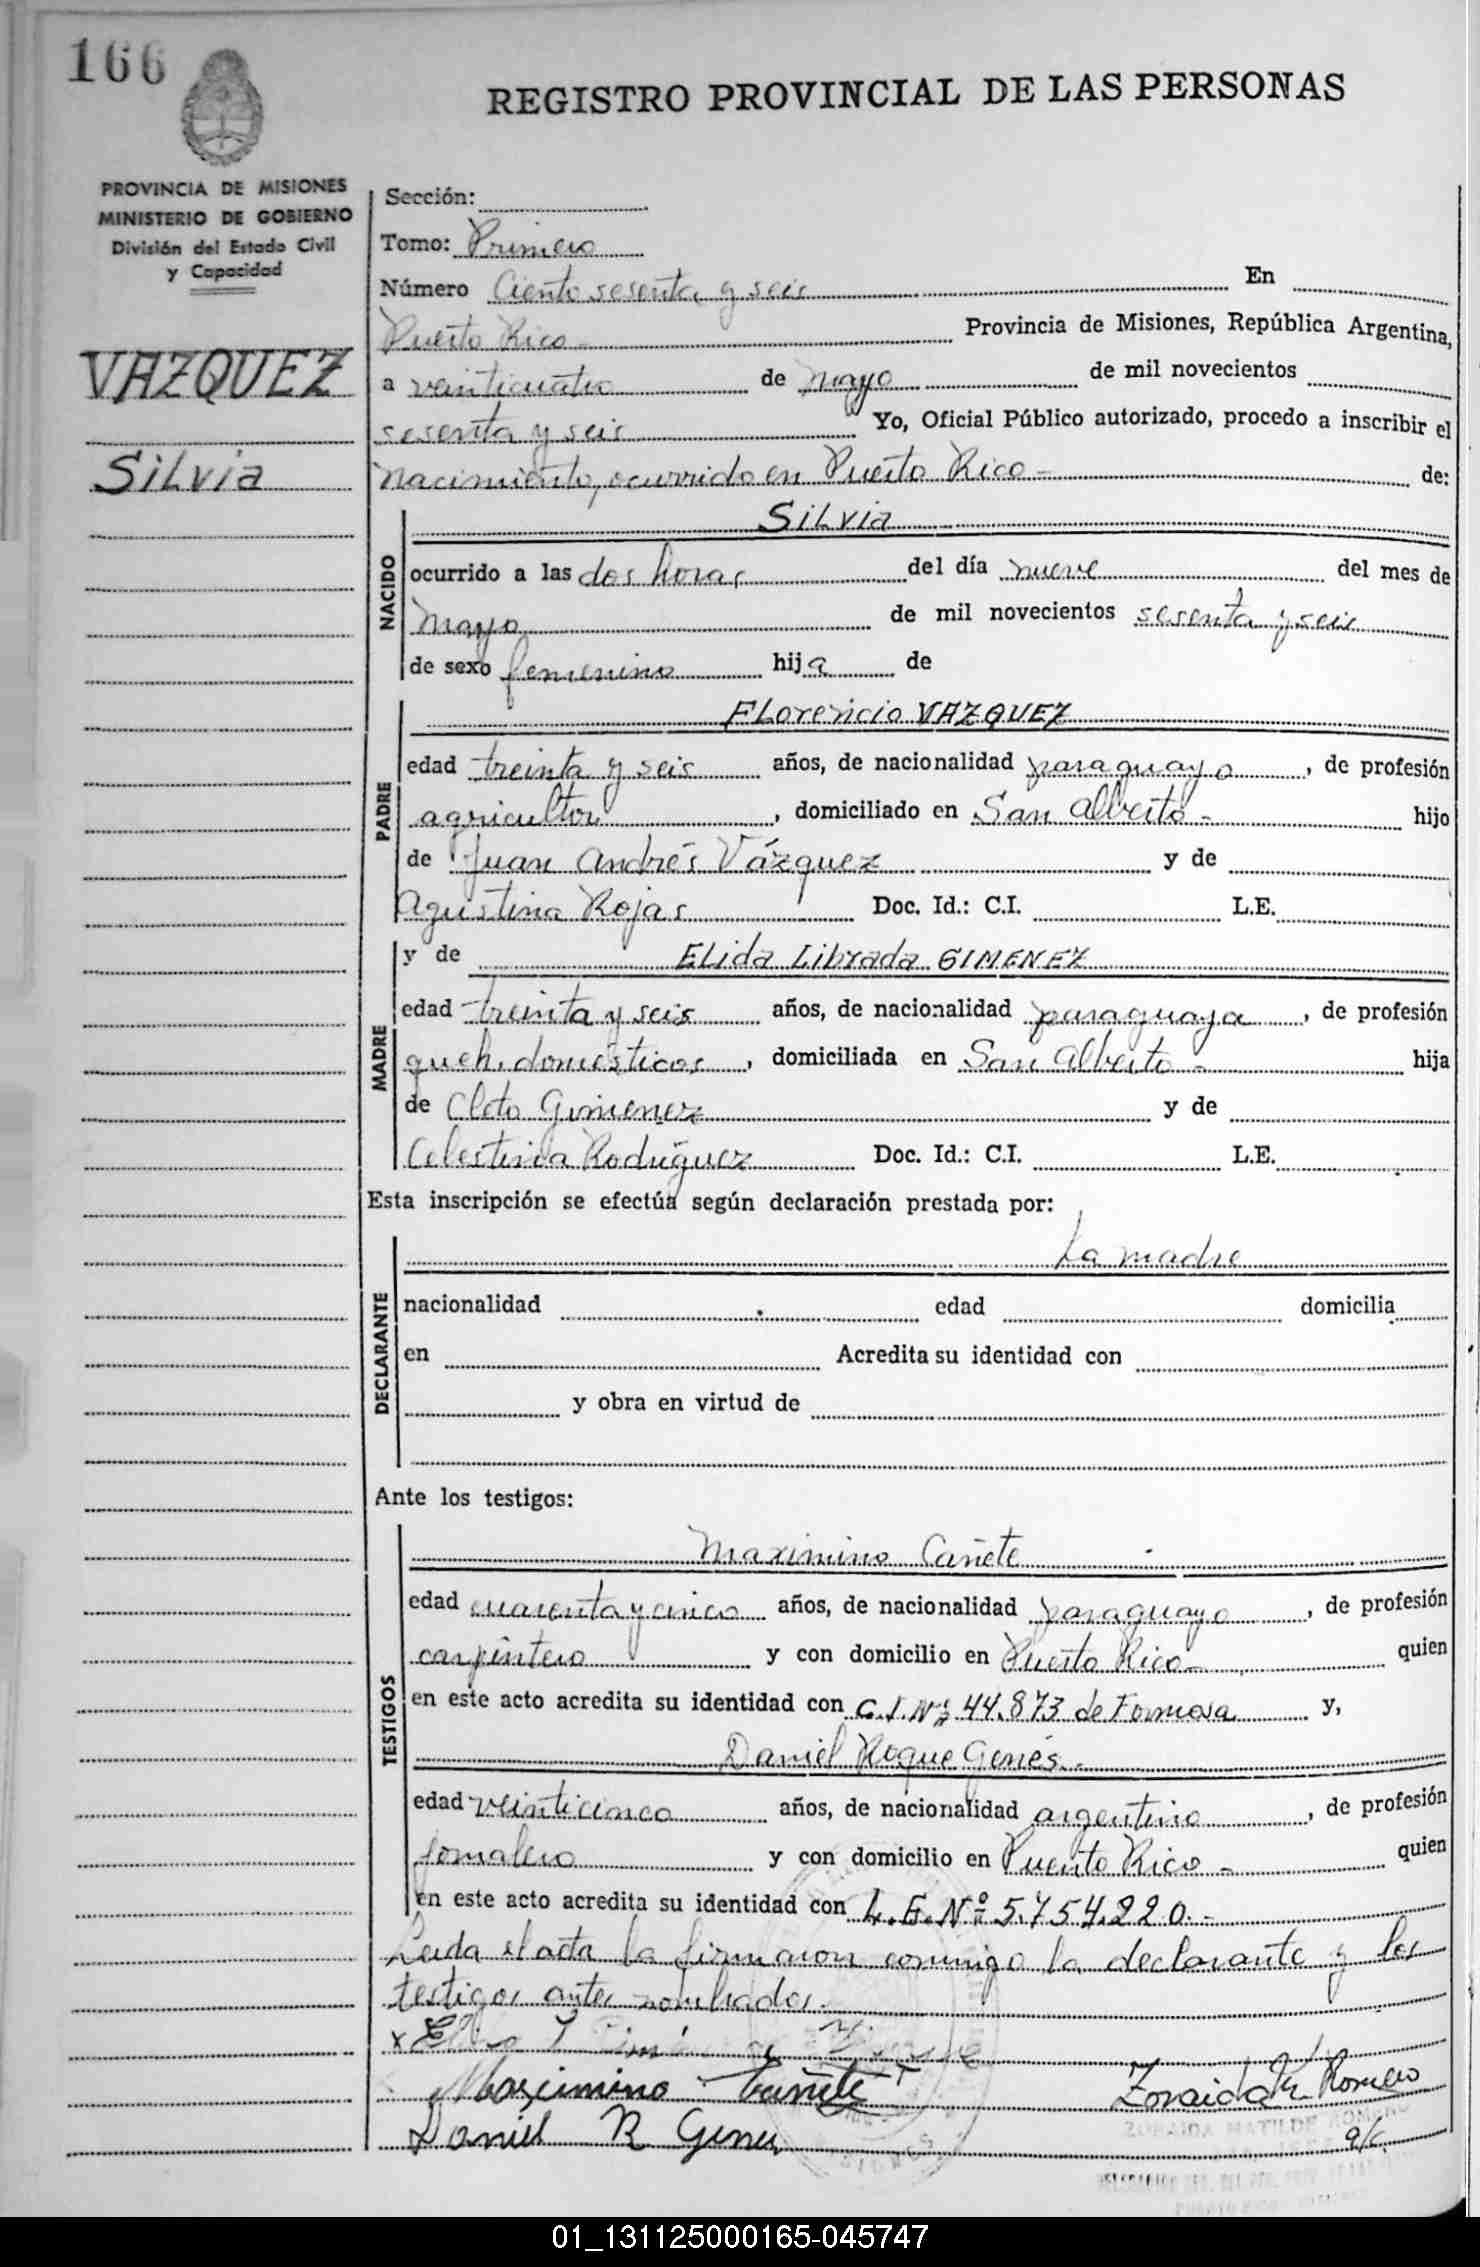 166
REGISTRO PROVINCIAL DE LAS PERSONAS
PROVINCIA DE MISIONES
MINISTERIO DE GOBIERNO
División del Estado Civil
y Capacidad
VAZQUEZ
Silvia
Sección:
Tomo: Primero
Número Ciento sesenta y seis En
Puerto Rico Provincia de Misiones, República Argentina,
a veinticuatro de mayo de mil novecientos
sesenta y seis Yo, Oficial Público autorizado, procedo a inscribir el
nacimiento, ocurrido en Puerto Rico - de:
NACIDO
Silvia
ocurrido a las dos horas del día nueve del mes de
mayo de mil novecientos sesenta y seis
de sexo femenino hija de
PADRE
Florencio VAZQUEZ
edad treinta y seis años, de nacionalidad paraguayo, de profesión
agricultor, domiciliado en San Alberto - hijo
de Juan Andrés Vázquez y de
Agustina Rojas Doc. Id.: C.I. L.E.
MADRE
y de Elida Librada GIMENEZ
edad treinta y seis años, de nacionalidad paraguaya, de profesión
queh. domésticos, domiciliada en San Alberto - hija
de Cleto Gimenez y de
Celestina Rodríguez Doc. Id.: C.I. L.E.
Esta inscripción se efectúa según declaración prestada por:
DECLARANTE
La madre
nacionalidad edad domicilia
en Acredita su identidad con
y obra en virtud de
Ante los testigos:
TESTIGOS
Maximino Cañete
edad cuarenta y cinco años, de nacionalidad paraguayo, de profesión
carpintero y con domicilio en Puerto Rico - quien
en este acto acredita su identidad con C.I. Nº 44.873 de Formosa y,
Daniel Roque Genés.
edad veinticinco años, de nacionalidad argentino, de profesión
jornalero y con domicilio en Puerto Rico - quien
en este acto acredita su identidad con L.E. Nº 5.754.220.-
Leida el acta la firmaron conmigo la declarante y los
testigos antes nombrados.
x
Maximino Cañete Zoraida M. Romero
Daniel R Genes a/c.
ZORAIDA MATILDE ROMERO
01_131125000165-045747